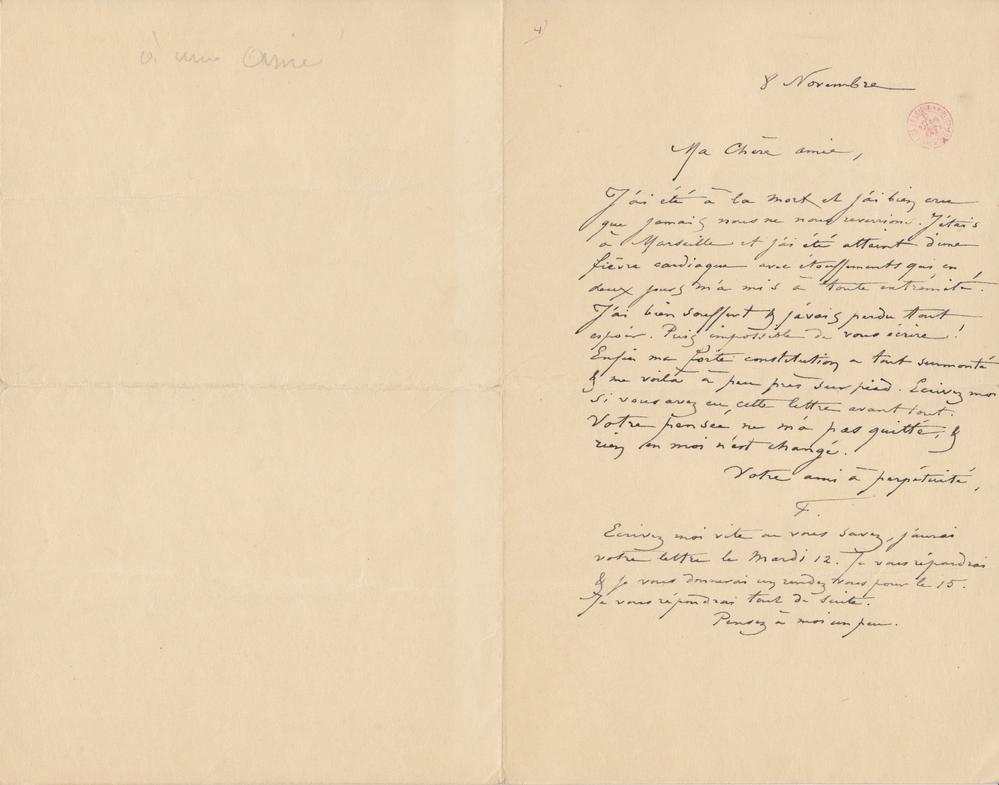 à une amie
4
8 Novembre
Ma Chère amie,
J'ai été à la mort et j'ai bien cru
que jamais nous ne nous reverrions. J'étais
à Marseille et j'ai été atteint d'une
fièvre cardiaque avec étouffements qui en
deux jours m'a mis à toute extrémité.
J'ai bien souffert & j'avais perdu tout
espoir. Puis impossible de vous écrire !
Enfin ma forte constitution a tout surmonté
& me voilà à peu près sur pied. Ecrivez moi
si vous avez eu cette lettre avant tout.
Votre pensée ne m'a pas quitté, &
rien en moi n'est changé.
Votre ami à perpétuité,
F.
Ecrivez moi vite où vous savez, j'aurai
votre lettre le Mardi 12. Je vous répondrai
& je vous donnerai un rendez vous pour le 15.
Je vous répondrai tout de suite.
Pensez à moi un peu.